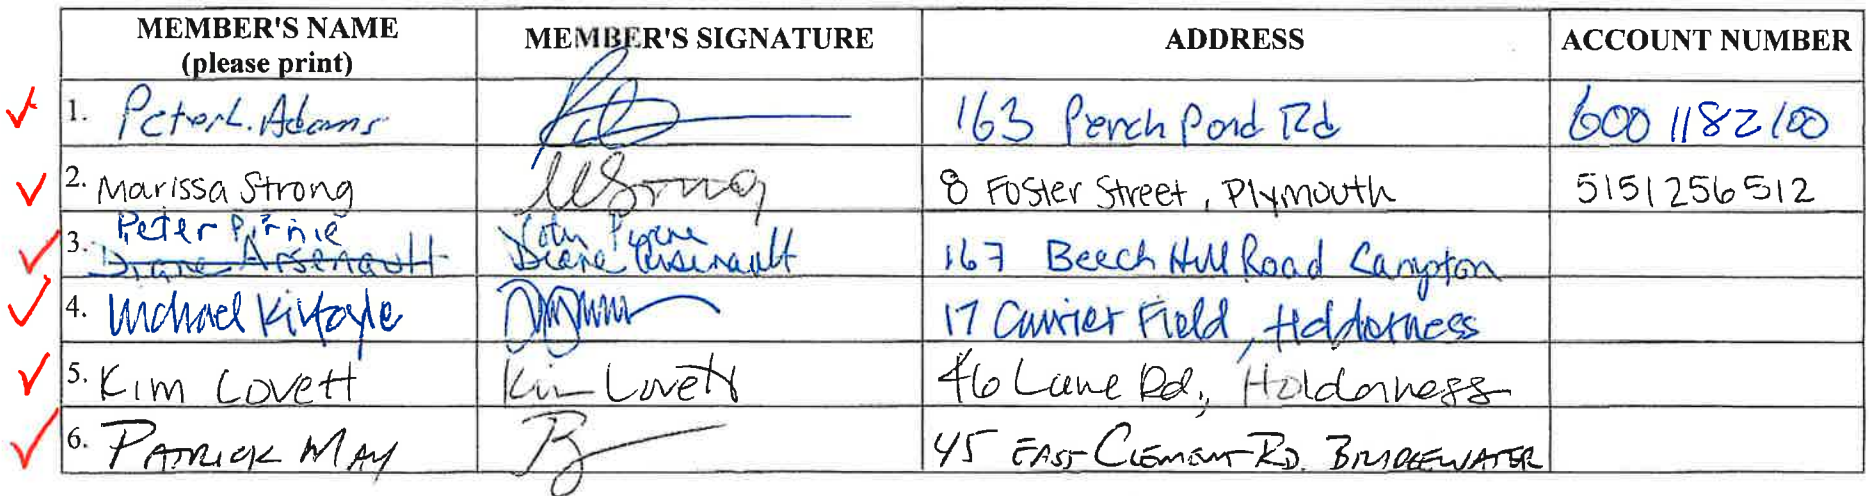 MEMBER'S NAME (please print) MEMBER'S SIGNATURE ADDRESS ACCOUNT NUMBER
1. Peter L. Adams 163 Perch Pond Rd 6001182100
2. Marissa Strong MStrong 8 Foster Street, Plymouth 5151256512
Peter Pirnie
3. Diane Arsenault Diane Arsenault 167 Beech Hill Road Campton
4. Michael Kilfoyle 17 Currier Field, Holderness
5. Kim Lovett Kim Lovett 46 Lane Rd., Holderness
6. Patrick May 45 East Clement Rd. Bridgewater